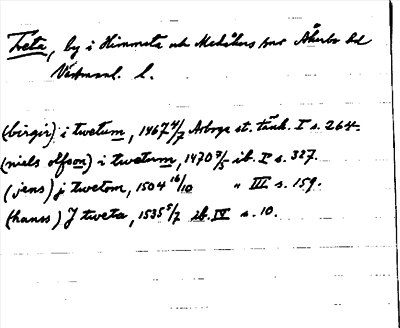 Tveta, by i Himmeta och Medåkers snr Åkerbo hd
Västmanl. l.
(birgir) i twetum, 1467 4/7 Arboga st. tänk. I s. 264.
(niels olfson) i twetum, 1470 7/5 ib. I s. 327.
(jens) j twetom, 1504 16/10 " III s. 159.
(hanss) J tweta, 1535 5/7 ib. IV s. 10.